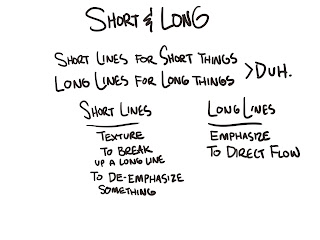 SHORT & LONG
SHORT LINES FOR SHORT THINGS
LONG LINES FOR LONG THINGS
> DUH.
SHORT LINES
TEXTURE
TO BREAK
UP A LONG LINE
TO DE-EMPHASIZE
SOMETHING
LONG LINES
EMPHASIZE
TO DIRECT FLOW